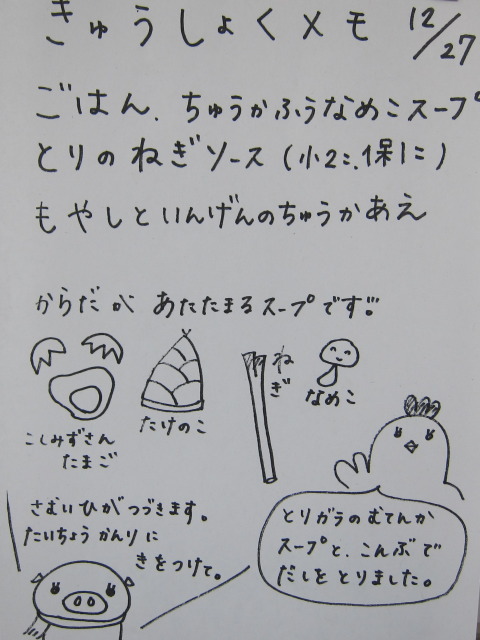 きゅうしょくメモ 12/27
ごはん、ちゅうかふうなめこスープ
とりのねぎソース(小2こ、保1こ)
もやしといんげんのちゅうかあえ
からだが あたたまるスープです!!
こしみずさん
たまご
たけのこ
ねぎ
なめこ
さむいひがつづきます。
たいちょうかんりに
きをつけて。
とりガラのむてんか
スープと、こんぶで
だしをとりました。